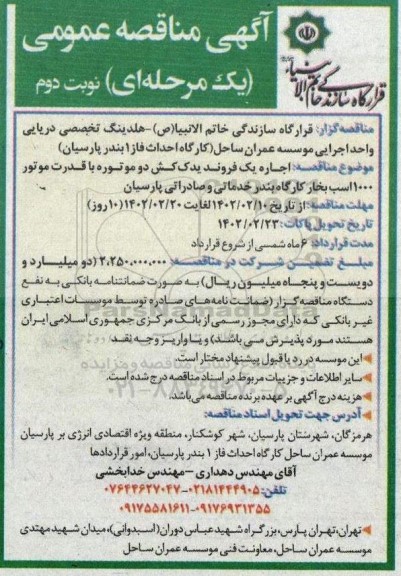 آگهی مناقصه عمومی
(یک مرحله‌ای) نوبت دوم
قرارگاه سازندگی خاتم الانبیاء
مناقصه‌گزار: قرارگاه سازندگی خاتم الانبیا(ص)-هلدینگ تخصصی دریایی
واحد اجرایی موسسه عمران ساحل(کارگاه احداث فاز۱ بندر پارسیان)
موضوع مناقصه: اجاره یک فروند یدک‌کش دو موتوره با قدرت موتور
۱۰۰۰اسب بخار کارگاه بندر خدماتی و صادراتی پارسیان
مهلت مناقصه: از تاریخ ۱۴۰۲/۰۲/۱۰لغایت ۱۴۰۲/۰۲/۲۰(۱۰روز)
تاریخ تحویل پاکات: ۱۴۰۲/۰۲/۲۳
مدت قرارداد: ۶ماه شمسی از شروع قرارداد
مبلغ تضمین شرکت در مناقصه: ۲,۲۵۰,۰۰۰,۰۰۰ (دو میلیارد و
دویست و پنجاه میلیون ریال) به صورت ضمانتنامه بانکی به نفع
دستگاه مناقصه‌گزار (ضمانت نامه‌های صادره توسط موسسات اعتباری
غیر بانکی که دارای مجوز رسمی از بانک مرکزی جمهوری اسلامی ایران
هستند مورد پذیرش می باشد) و یا واریز وجه نقد
این موسسه در رد یا قبول پیشنهاد مختار است.
سایر اطلاعات و جزییات مربوط در اسناد مناقصه درج شده است.
هزینه درج آگهی بر عهده برنده مناقصه می‌باشد.
آدرس جهت تحویل اسناد مناقصه:
هرمزگان، شهرستان پارسیان، شهر کوشکنار، منطقه ویژه اقتصادی انرژی بر پارسیان
موسسه عمران ساحل کارگاه احداث فاز ۱ بندر پارسیان، امور قراردادها
آقای مهندس دهداری -مهندس خدابخشی
تلفن: ۰۲۱۸۱۴۴۴۹۰۵-۰۷۶۴۴۶۲۷۰۴۷
۰۹۱۷۶۹۳۱۳۵۵-۰۹۱۷۵۵۸۱۶۱۱
تهران، تهران پارس، بزرگراه شهید عباس دوران(اسبدوانی)، میدان شهید مهتدی
موسسه عمران ساحل، معاونت فنی موسسه عمران ساحل